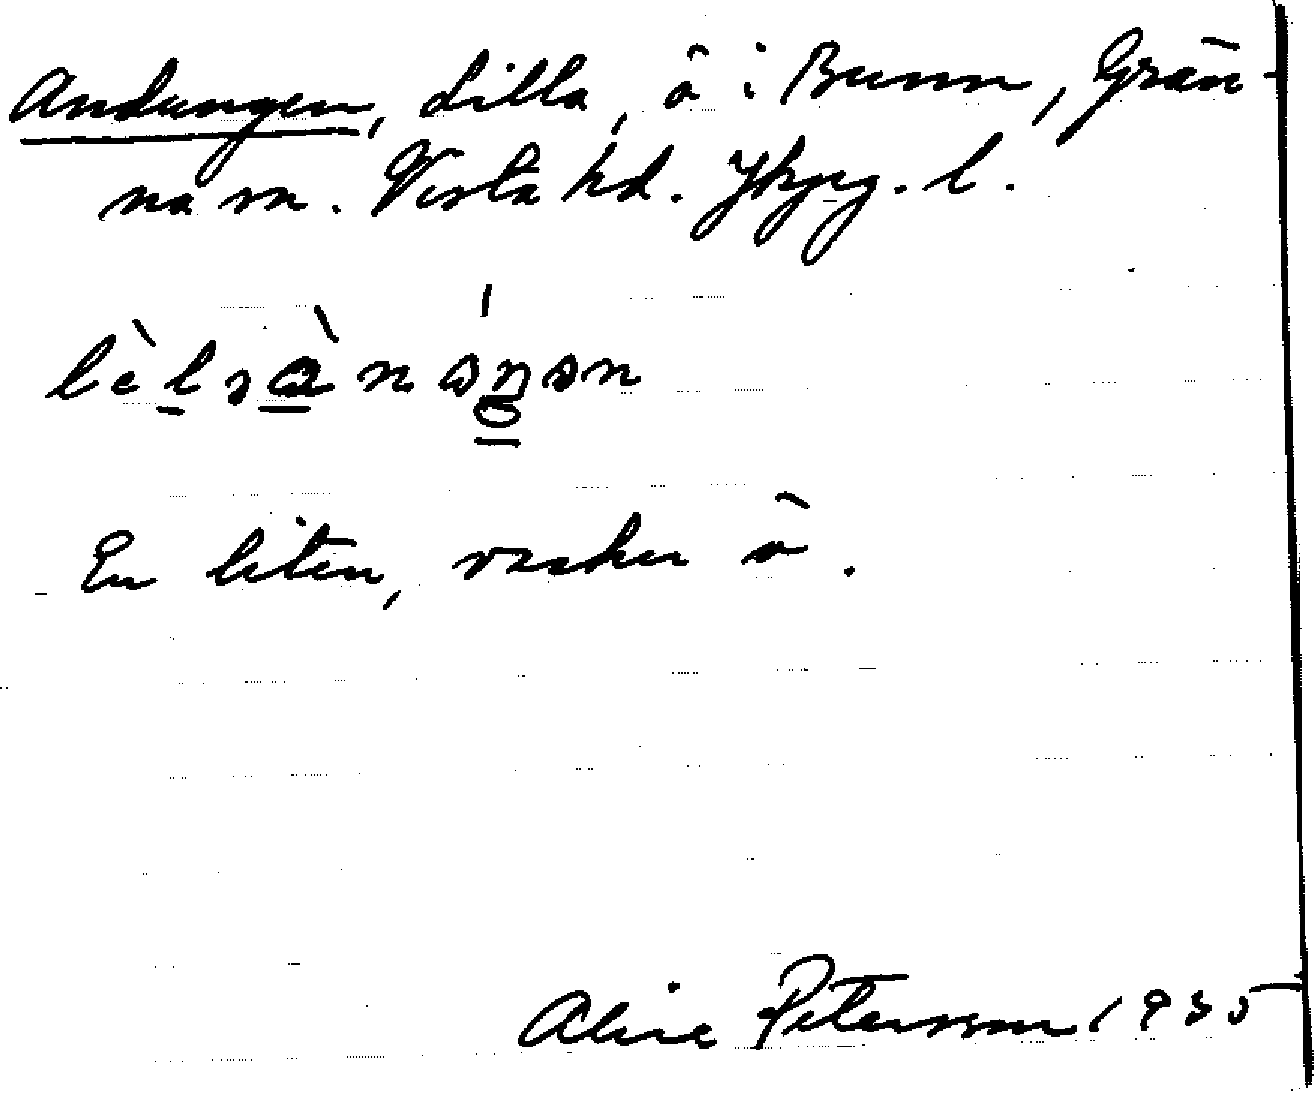 Andungen, Lilla, ö i Bunn, Grän-
na sn. Vista hd. Jkpg. l.
En liten, vacker ö.
Alice Petersson 1935